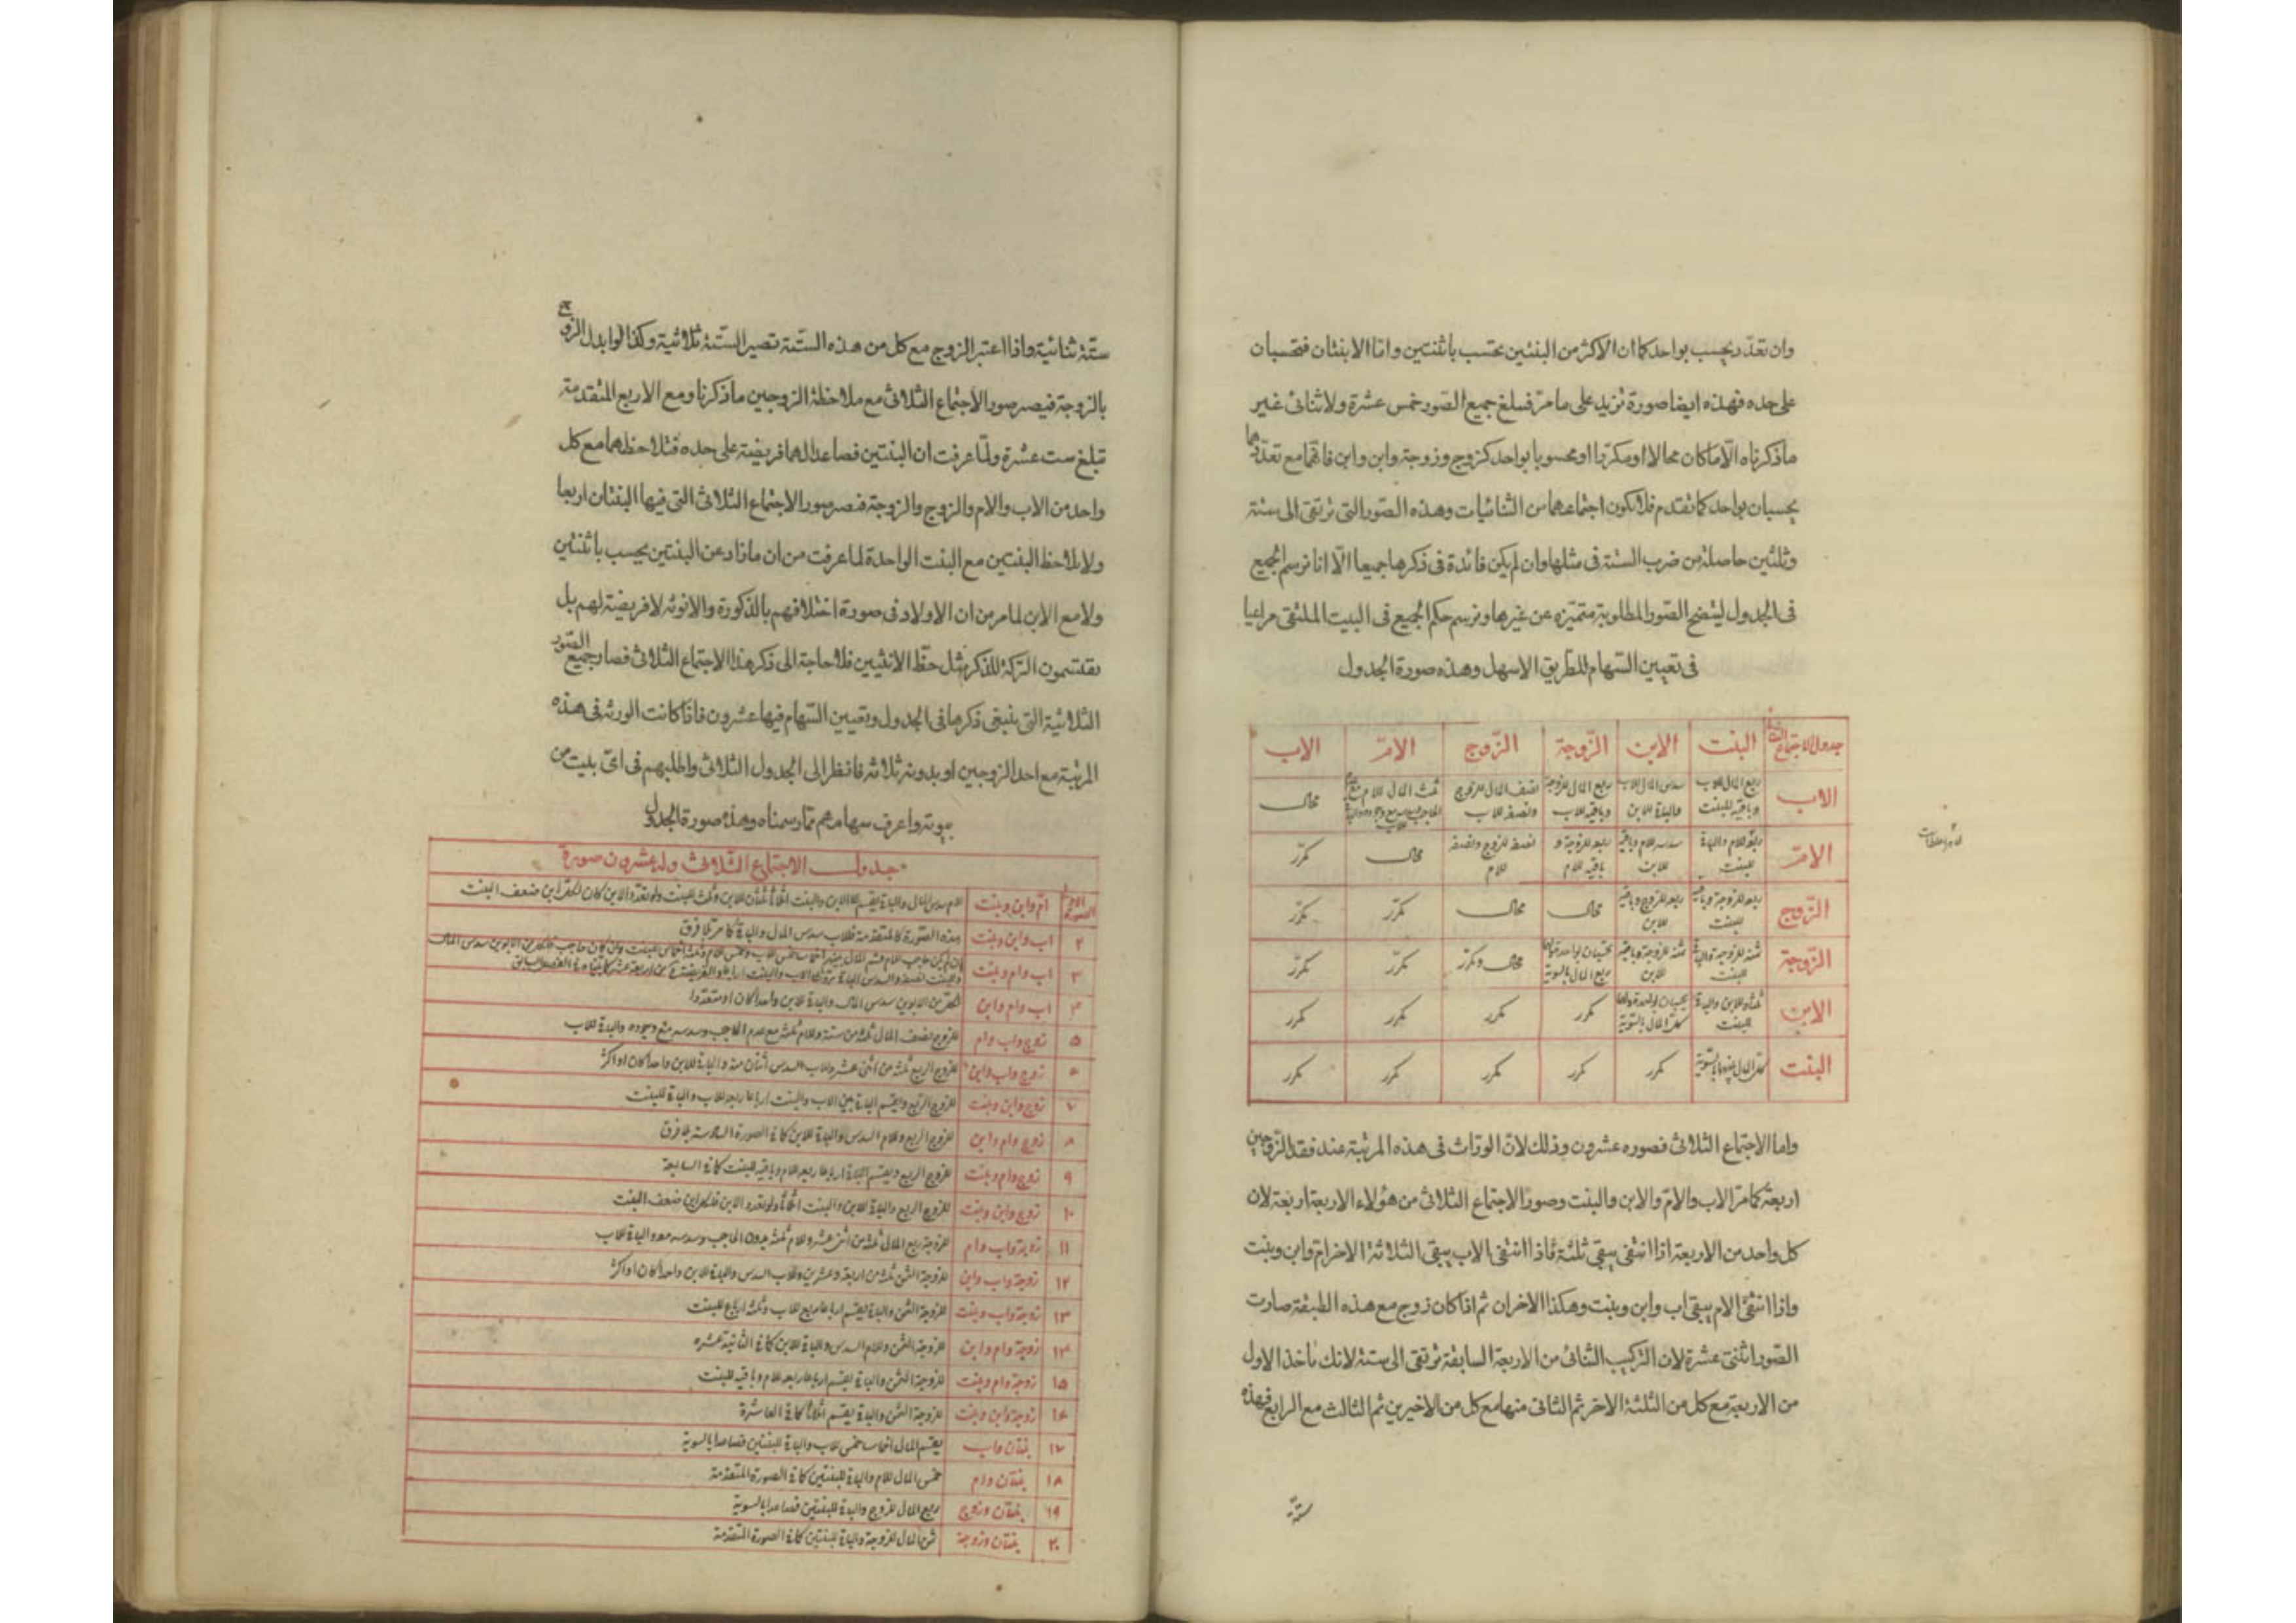 وان تعدّد يحسب بواحد كما ان الاكثر من البنتين يحتسب باثنتين وامّا الابنتان فتحسبان
على حده فهذه ايضا صورة تزيد على ما مرّ فيبلغ جميع الصّور خمس عشرة ولا ثنائى غير
ماذكرناه الّا ما كان محالا او مكرّرا او محسوبا بواحد كزوج وزوجة وابن وابن فانّهما مع تعدّدهما
يحسبان بواحد كما تقدم فلا يكون اجتماعهما من الثنائيات وهذه الصّور التى ترتقى الى ستة
وثلثين حاصلة من ضرب الستة فى مثلها وان لم يكن فائدة فى ذكرها جميعا الّا انا نرسم الجميع
فى الجدول ليتضح الصّور المطلوبة متميّزه عن غيرها ونرسم حكم الجميع فى البيت الملتقى مراعيا
فى تعيين السّهام للطريق الاسهل وهذه صورة الجدول
جدول الاجتماع الثنائى البنت الابن الزّوجة الزّوج الامّ الاب
الاب ربع المال للاب وباقيه للبنت سدس المال للاب والباقى للابن ربع المال للزوجة وباقيه للاب نصف المال للزوج ونصفه للاب ثلث المال للام محال
الامّ ربعه للام والباقى للبنت سدسه للام وباقيه للابن ربعه للزوجة و باقيه للام نصفه للزوج ونصفه للام محال مكرّر
الزّوج ربعه للزوج وباقيه للبنت ربعه للزوج وباقيه للابن محال محال مكرّر مكرّر
الزّوجة ثمنه للزوجة والباقى للبنت ثمنه للزوجة وباقيه للابن تحسبان بواحدة ولهما ربع المال بالسوية محال ومكرّر مكرّر مكرّر
الابن ثلثاه للابن والباقى للبنت يحسبان بواحد ولهما كلّ المال بالسّوية مكرر مكرر مكرر مكرر
البنت كلّ المال لهما بالسّوية مكرر مكرر مكرر مكرر مكرر
واما الاجتماع الثلاثى فصوره عشرون وذلك لانّ الورّاث فى هذه المرتبة عند فقد الزّوجين
اربعة كما مرّ الاب والامّ والابن والبنت وصور الاجتماع الثلاثى من هؤلاء الاربعة اربعة لان
كل واحد من الاربعة اذا انتفى يبقى ثلثة فاذا انتفى الاب يبقى الثلاثة الاخر ام وابن وبنت
واذا انتفى الام يبقى اب وابن وبنت وهكذا الاخران ثم اذا كان زوج مع هذه الطبقة صارت
الصّور اثنتى عشرة لان التركيب الثنائى من الاربعة السابقة ترتقى الى ستة لانك تأخذ الاول
من الاربعة مع كل من الثلثة الاخر ثم الثانى منها مع كل من الاخيرين ثم الثالث مع الرابع فهذه
ستّة
ستّة ثنائية واذا اعتبر الزوج مع كل من هذه الستّة تصير الستّة ثلاثية وكذا لو ابدل الزوج
بالزوجة فيصير صور الاجتماع الثلاثى مع ملاحظة الزوجين ماذكرنا ومع الاربع المتقدمة
تبلغ ست عشرة ولمّا عرفت ان البنتين فصاعدا لهما فريضة على حده فتلاحظهما مع كل
واحد من الاب والام والزوج والزوجة فتصير صور الاجتماع الثلاثى التى فيها البنتان اربعا
ولا يلاحظ البنتين مع البنت الواحدة لما عرفت من ان ما زاد عن البنتين يحسب باثنتين
ولا مع الابن لما مر من ان الاولاد فى صورة اختلافهم بالذكورة والانوثة لا فريضة لهم بل
يقتسمون التركة للذكر مثل حظّ الانثيين فلا حاجة الى ذكر هذا الاجتماع الثلاثى فصار جميع الصّور
الثلاثية التى ينبغى ذكرها فى الجدول وتعيين السّهام فيها عشرون فاذا كانت الورثه فى هذه
المرتبة مع احد الزوجين او بدونه ثلاثة فانظر الى الجدول الثلاثى واطلبهم فى اىّ بيت من
بيوته واعرف سهامهم ممّا رسمناه وهذه صورة الجدول
جدول الاجتماع الثلاثى وله عشرون صورة
امّ وابن وبنت للام سدس المال والباقى يقسم للابن والبنت اثلاثا ثلثان للابن وثلث للبنت ولو تعدّد الابن كان لكلّ ابن ضعف البنت
٢ اب وابن وبنت هذه الصّورة كالمتقدمة فللاب سدس المال والباقى كما مرّ بلا فرق
٣ اب وام وبنت
٤ اب وام وابن لكلّ من الابوين سدس المال والباقى للابن واحدا كان او متعدّدا
٥ زوج واب وام للزوج نصف المال ثلثة من ستة وللام ثلثه مع عدم الحاجب وسدسه مع وجوده والباقى للاب
٦ زوج واب وابن للزوج الربع ثلثة من اثنى عشر وللاب السدس اثنان منه والباقى للابن واحدا كان او اكثر
٧ زوج وابن وبنت للزوج الربع ويقسم الباقى بين الاب والبنت ارباعا ربعه للاب والباقى للبنت
٨ زوج وام وابن للزوج الربع وللام السدس والباقى للابن كما فى الصورة السادسة بلا فرق
٩ زوج وام وبنت للزوج الربع ويقسم الباقى ارباعا ربعه للام وباقيه للبنت كما فى السابعة
١٠ زوج وابن وبنت للزوج الربع والباقى للابن والبنت اثلاثا ولو تعدد الابن فلكل ابن ضعف البنت
١١ زوجة واب وام للزوجة ربع المال ثلثة من اثنى عشر وللام ثلثه بدون الحاجب وسدسه معه والباقى للاب
١٢ زوجة واب وابن للزوجة الثمن ثلثة من اربعة وعشرين وللاب السدس والباقى للابن واحدا كان او اكثر
١٣ زوجة واب وبنت للزوجة الثمن والباقى يقسم ارباعا ربع للاب وثلثة ارباع للبنت
١٤ زوجة وام وابن للزوجة الثمن وللام السدس والباقى للابن كما فى الثانية عشره
١٥ زوجة وام وبنت للزوجة الثمن والباقى يقسم ارباعا ربعه للام وباقيه للبنت
١٦ زوجة وابن وبنت للزوجة الثمن والباقى يقسم اثلاثا كما فى العاشرة
١٧ بنتان واب يقسم المال اخماسا خمس للاب والباقى للبنتين فصاعدا بالسوية
١٨ بنتان وام خمس المال للام والباقى للبنتين كما فى الصورة المتقدمة
١٩ بنتان وزوج ربع المال للزوج والباقى للبنتين فصاعدا بالسوية
٢٠ بنتان وزوجة ثمن المال للزوجة والباقى للبنتين كما فى الصورة المتقدمة